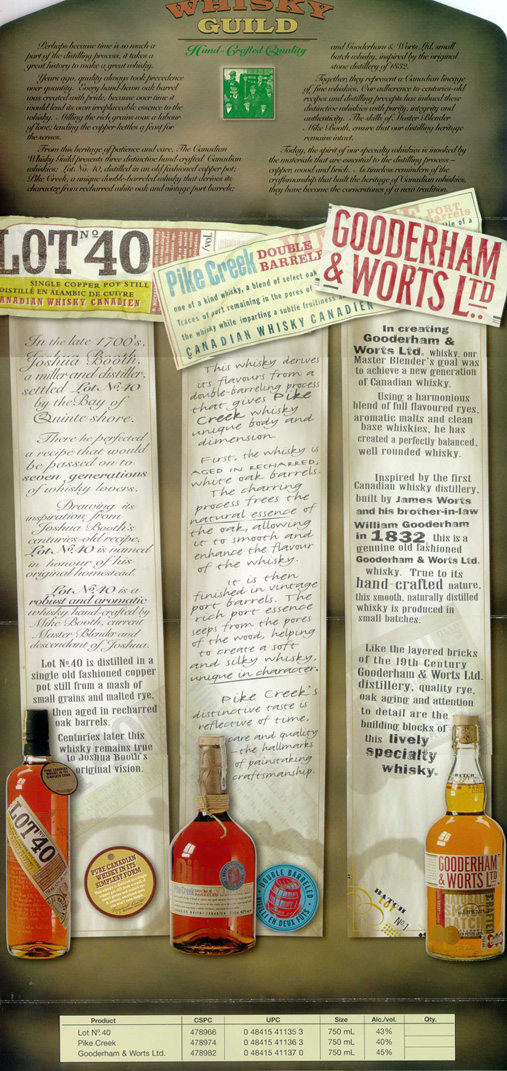 WHISKY
GUILD
Hand-Crafted Quality
Perhaps because time is so much a
part of the distilling process, it takes a
great history to make a great whisky.
Years ago, quality always took precedence
over quantity. Every hand-hewn oak barrel
was created with pride, because over time it
would lend its own irreplaceable essence to the
whisky. Milling the rich grains was a labour
of love; tending the copper kettles a feast for
the senses.
From this heritage of patience and care, The Canadian
Whisky Guild presents three distinctive hand-crafted Canadian
whiskies: Lot No. 40, distilled in an old fashioned copper pot;
Pike Creek, a unique double-barreled whisky that derives its
character from recharred white oak and vintage port barrels;
and Gooderham & Worts Ltd. small
batch whisky, inspired by the original
stone distillery of 1832.
Together, they represent a Canadian lineage
of fine whiskies. Our adherence to centuries-old
recipes and distilling precepts has imbued these
distinctive whiskies with purity, integrity and
authenticity. The skills of Master Blender
Mike Booth, ensure that our distilling heritage
remains intact.
Today, the spirit of our specialty whiskies is invoked by
the materials that are essential to the distilling process –
copper, wood and brick. As timeless reminders of the
craftsmanship that built the heritage of Canadian whiskies,
they have become the cornerstones of a new tradition.
LOT Nº 40
/vol.
SINGLE COPPER POT STILL
DISTILLÉ EN ALAMBIC DE CUIVRE
CANADIAN WHISKY CANADIEN
Pike Creek DOUBLE
BARRELE
one of a kind whisky, a blend of select oak
Traces of port remaining in the pores of
the whisky while imparting a subtle fruitiness
CANADIAN WHISKY CANADIEN
PORT
barrels
GOODERHAM
& WORTS LTD
In the late 1700's,
Joshua Booth,
a miller and distiller,
settled Lot Nº 40
by the Bay of
Quinte shore.
There he perfected
a recipe that would
be passed on to
seven generations
of whisky lovers.
Drawing its
inspiration from
Joshua Booth's
centuries-old recipe,
Lot Nº 40 is named
in honour of his
original homestead.
Lot Nº 40 is a
robust and aromatic
whisky hand-crafted by
Mike Booth, current
Master Blender and
descendant of Joshua.
Lot Nº 40 is distilled in a
single old fashioned copper
pot still from a mash of
small grains and malted rye,
then aged in recharred
oak barrels.
Centuries later this
whisky remains true
to Joshua Booth's
original vision.
This whisky derives
its flavours from a
double-barreling process
that gives Pike
Creek whisky
unique body and
dimension.
First, the whisky is
AGED IN RECHARRED,
white oak barrels.
The charring
process frees the
natural essence of
the oak, allowing
it to smooth and
enhance the flavour
of the whisky.
It is then
finished in vintage
port barrels. The
rich port essence
seeps from the pores
of the wood, helping
to create a soft
and silky whisky,
unique in character.
Pike Creek's
distinctive taste is
reflective of time,
care and quality
– the hallmarks
of painstaking
craftsmanship.
In creating
Gooderham &
Worts Ltd. whisky, our
Master Blender's goal was
to achieve a new generation
of Canadian whisky.
Using a harmonious
blend of full flavoured ryes,
aromatic malts and clean
base whiskies, he has
created a perfectly balanced,
well rounded whisky.
Inspired by the first
Canadian whisky distillery,
built by James Worts
and his brother-in-law
William Gooderham
in 1832 this is a
genuine old fashioned
Gooderham & Worts Ltd.
whisky. True to its
hand-crafted nature,
this smooth, naturally distilled
whisky is produced in
small batches.
Like the layered bricks
of the 19th Century
Gooderham & Worts Ltd.
distillery, quality rye,
oak aging and attention
to detail are the
building blocks of
this lively
specialty
whisky.
LOT Nº 40
PURE CANADIAN
WHISKY IN ITS
SIMPLEST FORM
Pike Creek
DOUBLE BARRELED
VIEILLI EN DEUX FÛTS
BATCH
Nº1
GOODERHAM
& WORTS LTD
Product CSPC UPC Size Alc./vol. Qty.
Lot Nº 40 478966 0 48415 41135 3 750 mL 43%
Pike Creek 478974 0 48415 41136 3 750 mL 40%
Gooderham & Worts Ltd. 478982 0 48415 41137 0 750 mL 45%